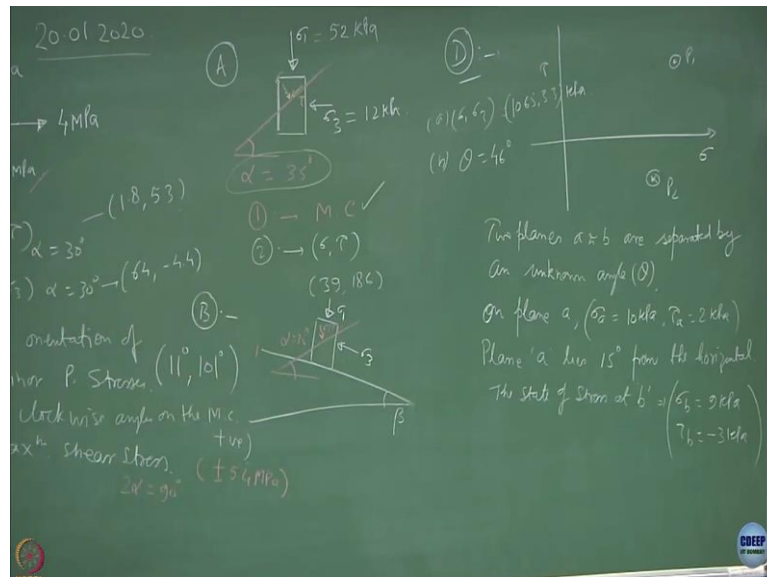 20.01.2020
a
→ 4MPa
mpa
(1.8, 53)
)α = 30°
3) α = 30° → (64, -4.4)
orientation of
P. Stresses (11°, 101°)
clockwise angle on the M.C.
+ve)
ax^m. shear stress.
2α = 90° (± 54 MPa)
A
σ1 = 52 kPa
σ3 = 12 kPa
α = 35°
① → M.C ✓
② → (σ, τ)
(39, 18.6)
B :-
σ1
σ3
β
D :-
τ
P1
(σ1, σ3)
kPa
(b) θ = 46°
σ
P2
Two planes a & b are separated by
an unknown angle (θ).
On plane a, (σa = 10kPa, τa = 2 kPa)
Plane 'a' lies 15° from the horizontal
The state of stress at 'b' = (σb = 9 kPa
τb = -3 kPa)
CDEEP
IIT BOMBAY